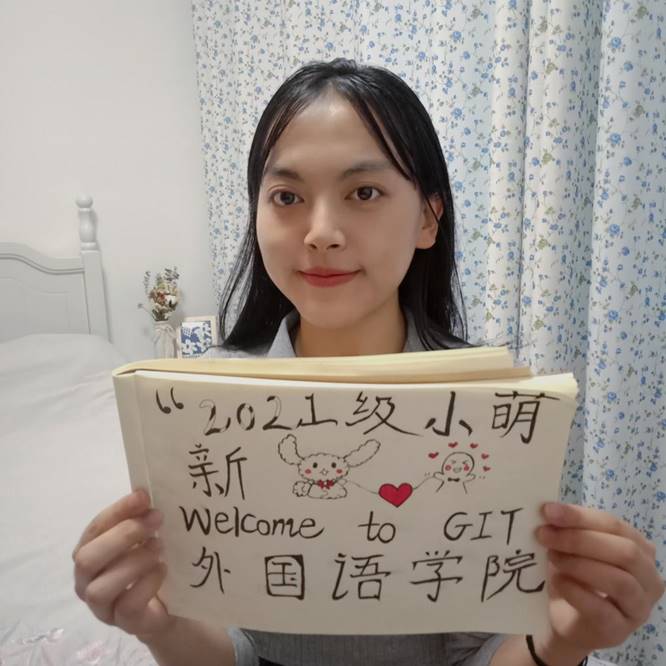 “2021级小萌
新
Welcome to GIT
外国语学院